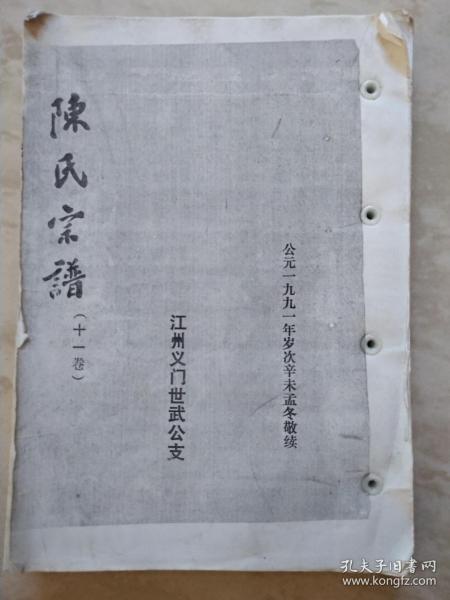 公元一九九一年岁次辛未孟冬敬续
江州义门世武公支
陳氏宗譜
(十一卷)
孔夫子旧书网
www.kongfz.com